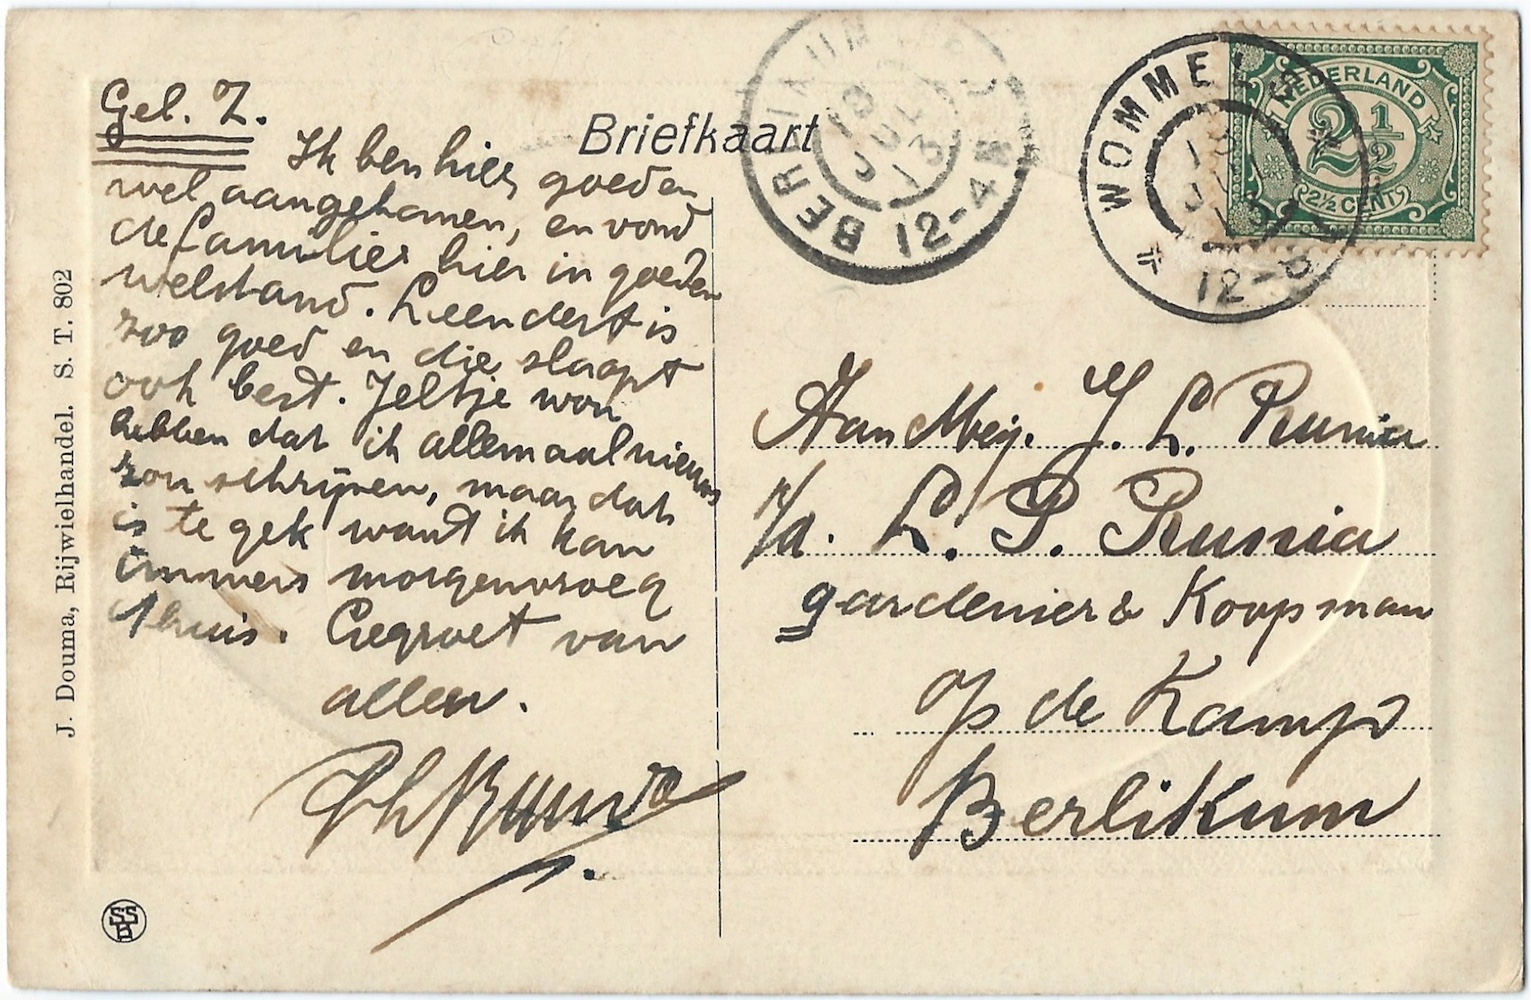 Gel. Z.
Ik ben hier goed en
wel aangekomen, en vond
de familie hier in goeden
welstand. Leendert is
zoo goed en die slaapt
ook best. Jeltje wou
hebben dat ik allemaal nieuws
zou schrijven, maar dat
is te gek want ik kan
immers morgenvroeg
thuis. Gegroet van
allen.
Ph Runia
Briefkaart
BERLIKUM
12-4
WOMMELS
12-
NEDERLAND
2 1/2
2½ CENT
Aan Mej. J. L. Runia
p/a. L. P. Runia
gardenier & Koopman
op de Kamp
Berlikum
J. Douma, Rijwielhandel. S. T. 802